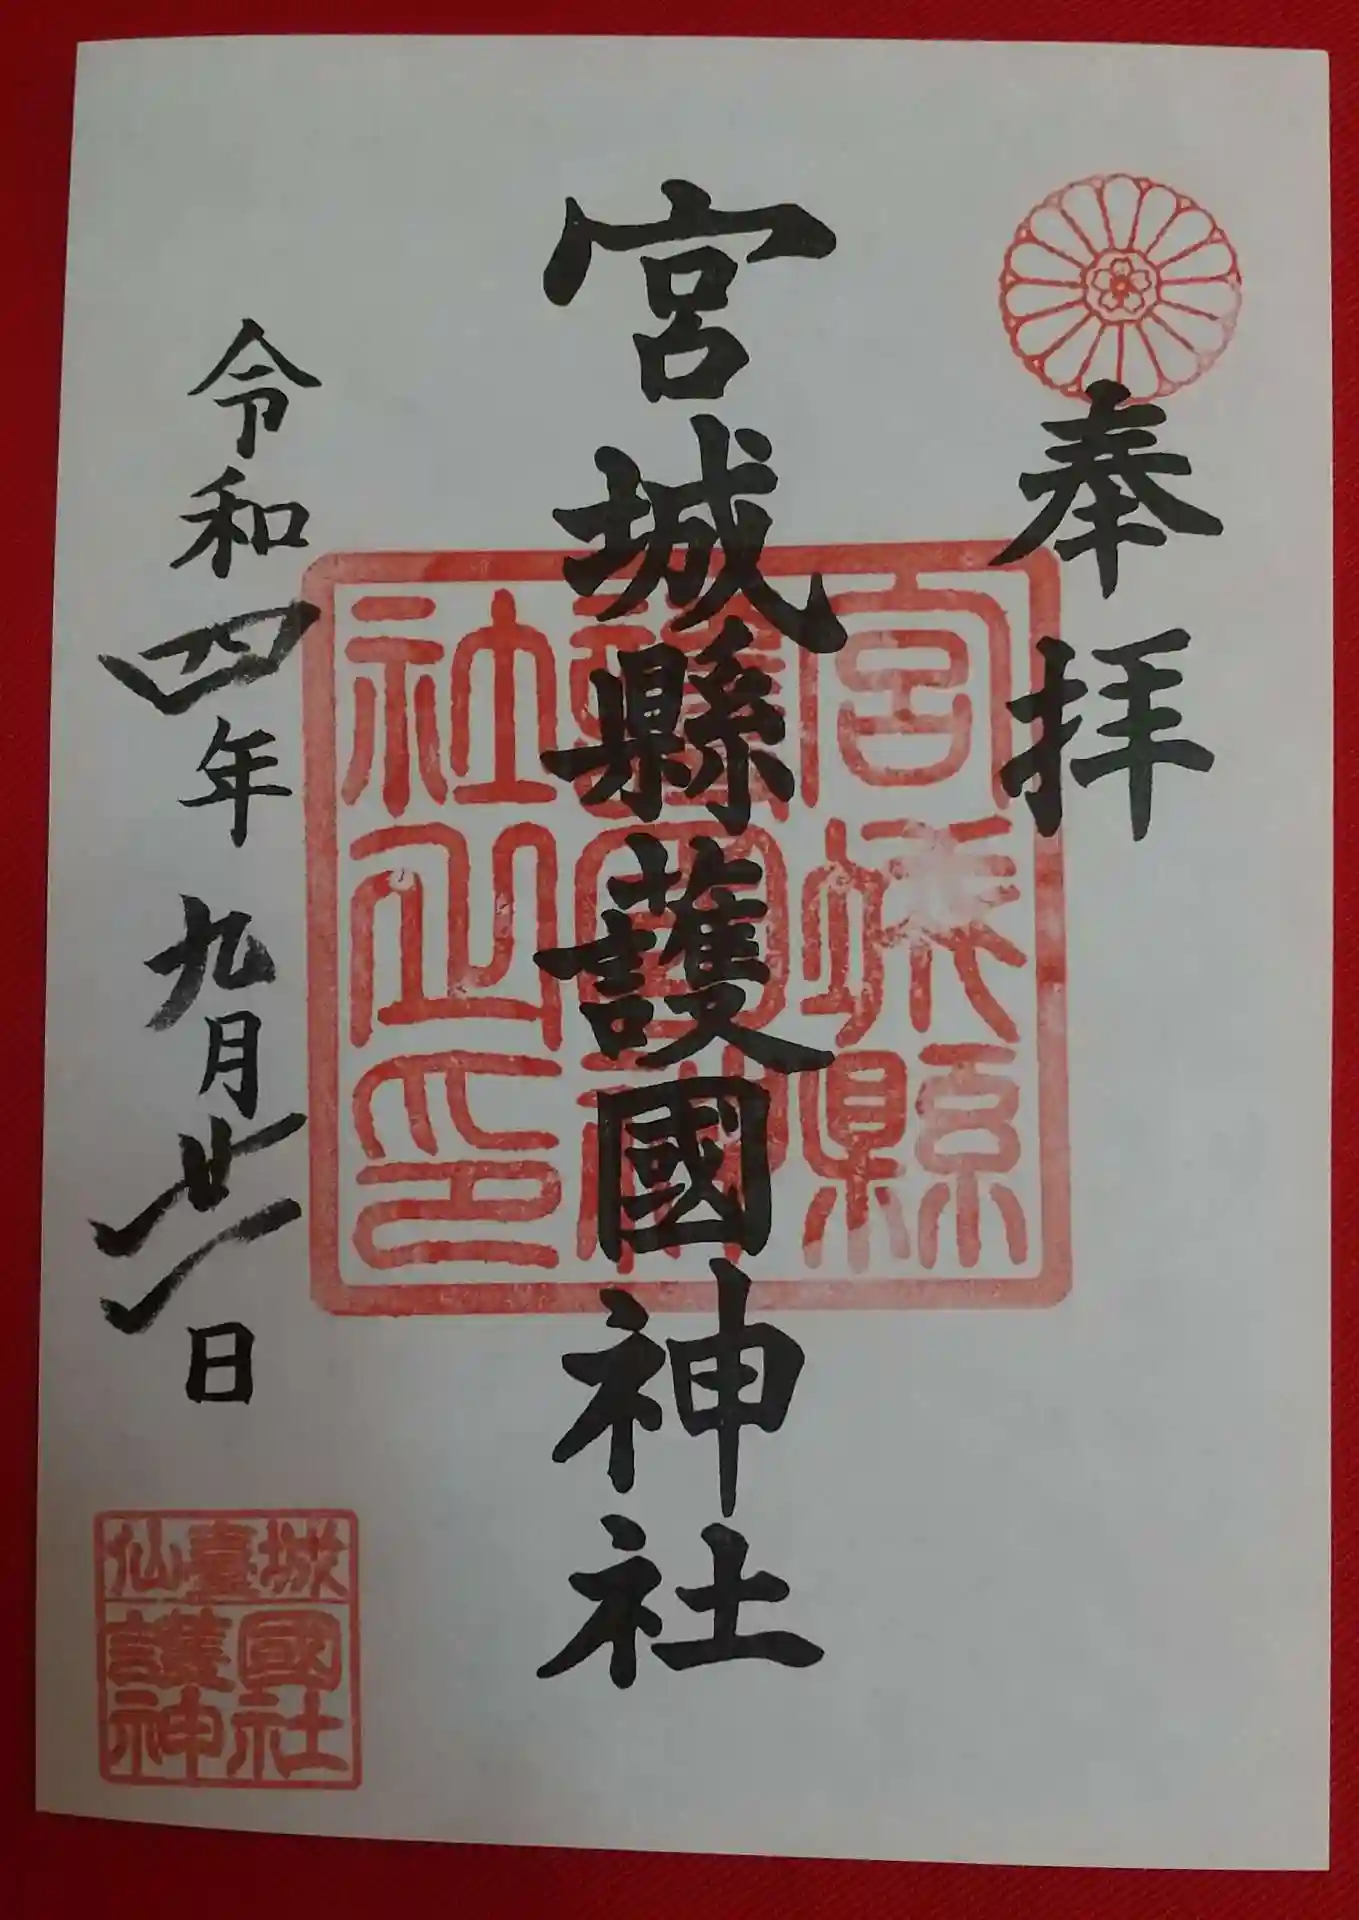 奉拝
宮城縣護國神社
宮城縣
護國神
社之印
令和四年九月廿一日
仙臺城
護國
神社